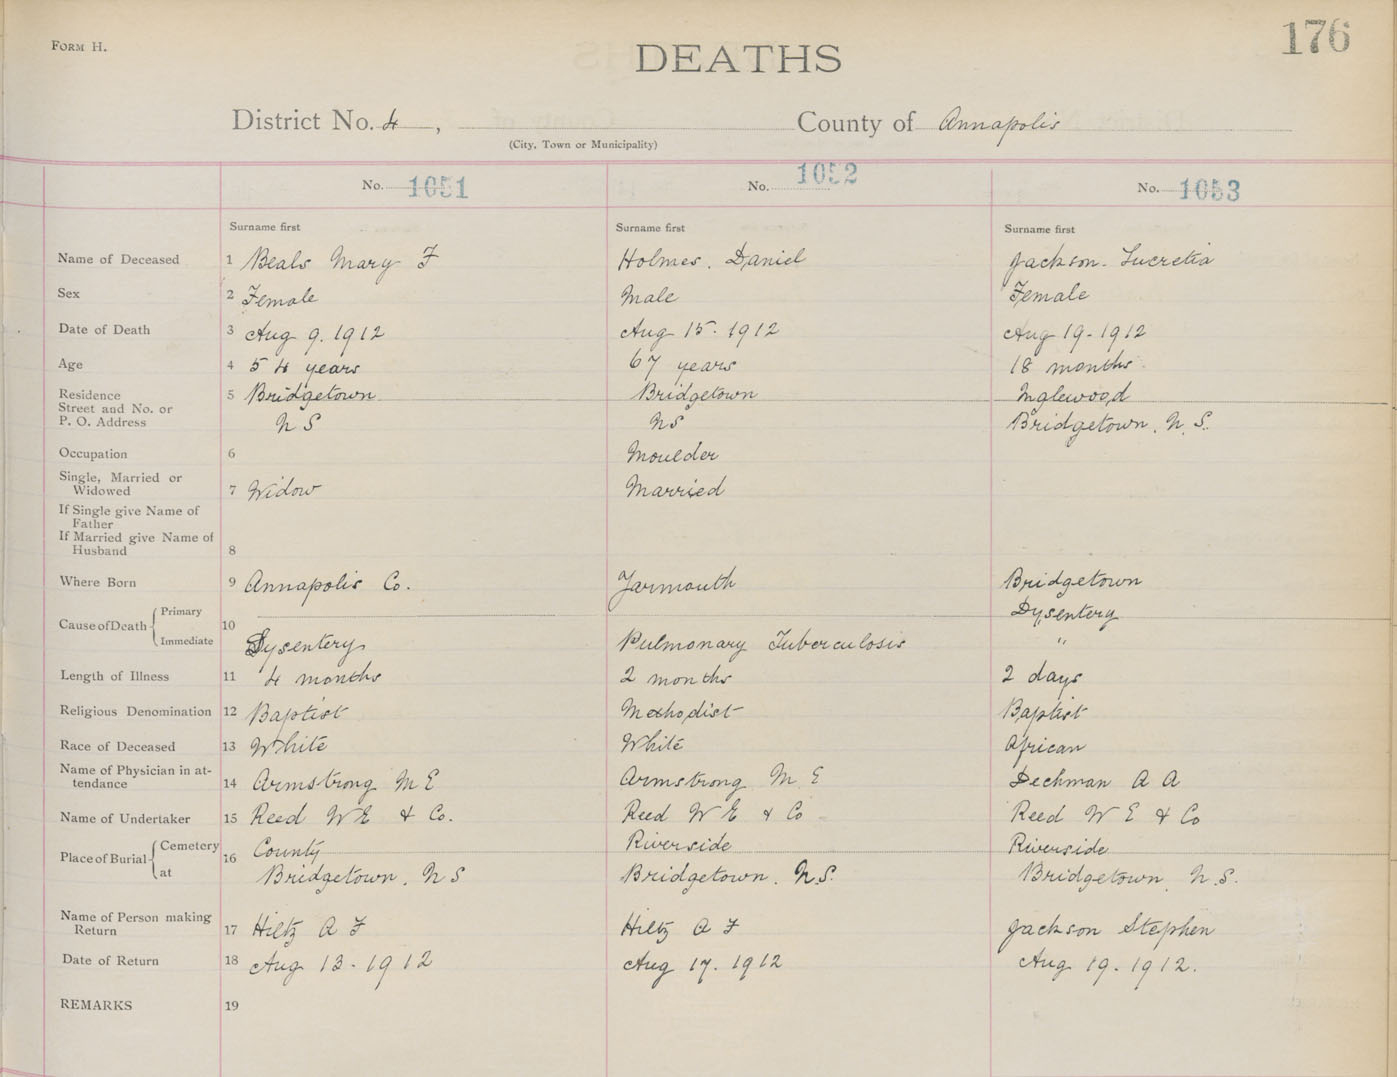 FORM H.
176
DEATHS
District No. 4, County of Annapolis
(City, Town or Municipality)
No. 1051 No. 1052 No. 1053
Surname first Surname first Surname first
Name of Deceased 1 Beals Mary F Holmes. Daniel Jackson. Lucretia
Sex 2 Female Male Female
Date of Death 3 Aug 9. 1912 Aug 15. 1912 Aug 19-1912
Age 4 54 years 67 years 18 months
Residence 5 Bridgetown Bridgetown Inglewood
Street and No. or
P. O. Address N S NS Bridgetown. N. S.
Occupation 6 Moulder
Single, Married or
Widowed 7 Widow Married
If Single give Name of
Father
If Married give Name of
Husband 8
Where Born 9 Annapolis Co. Yarmouth Bridgetown
Cause of Death Primary 10 Dysentery
Immediate Dysentery Pulmonary Tuberculosis "
Length of Illness 11 4 months 2 months 2 days
Religious Denomination 12 Baptist Methodist Baptist
Race of Deceased 13 White White African
Name of Physician in at-
tendance 14 Armstrong M E Armstrong M. E Dechman A A
Name of Undertaker 15 Reed W E & Co. Reed W E & Co Reed W E & Co
Place of Burial Cemetery 16 County Riverside Riverside
at Bridgetown. N S Bridgetown. N.S. Bridgetown. N.S.
Name of Person making
Return 17 Hiltz A F Hiltz A F Jackson Stephen
Date of Return 18 Aug 13-1912 Aug 17. 1912 Aug 19. 1912.
REMARKS 19